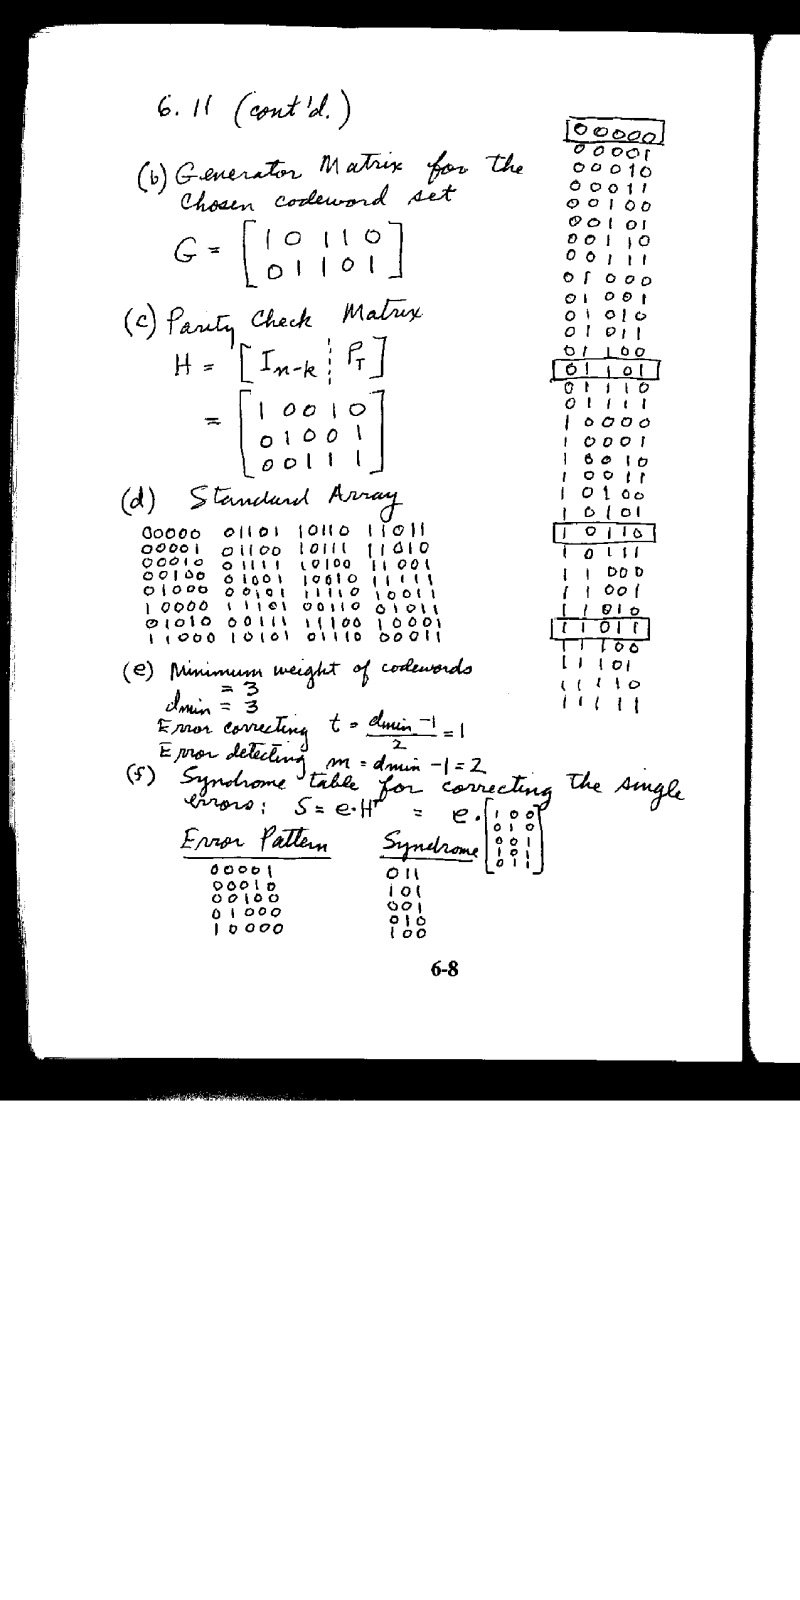 6.11 (cont'd.)
(b) Generator Matrix for the
chosen codeword set
G = [ 1 0 1 1 0
0 1 1 0 1 ]
(c) Parity Check Matrix
H = [ I n-k ¦ P T ]
= [ 1 0 0 1 0
0 1 0 0 1
0 0 1 1 1 ]
(d) Standard Array
00000 01101 10110 11011
00001 01100 10111 11010
00010 01111 10100 11001
00100 01001 10010 11111
01000 00101 11110 10011
10000 11101 00110 01011
01010 00111 11100 10001
11000 10101 01110 00011
(e) Minimum weight of codewords
= 3
dmin = 3
Error correcting t = dmin -1 / 2 = 1
Error detecting m = dmin -1 = 2
(f) Syndrome table for correcting the single
errors: S = e·H^T = e· [ 1 0 0
0 1 0
0 0 1
1 0 1
0 1 1 ]
Error Pattern Syndrome
00001 011
00010 101
00100 001
01000 010
10000 100
00000
00001
00010
00011
00100
00101
00110
00111
01000
01001
01010
01011
01100
01101
01110
01111
10000
10001
10010
10011
10100
10101
10110
10111
11000
11001
11010
11011
11100
11101
11110
11111
6-8